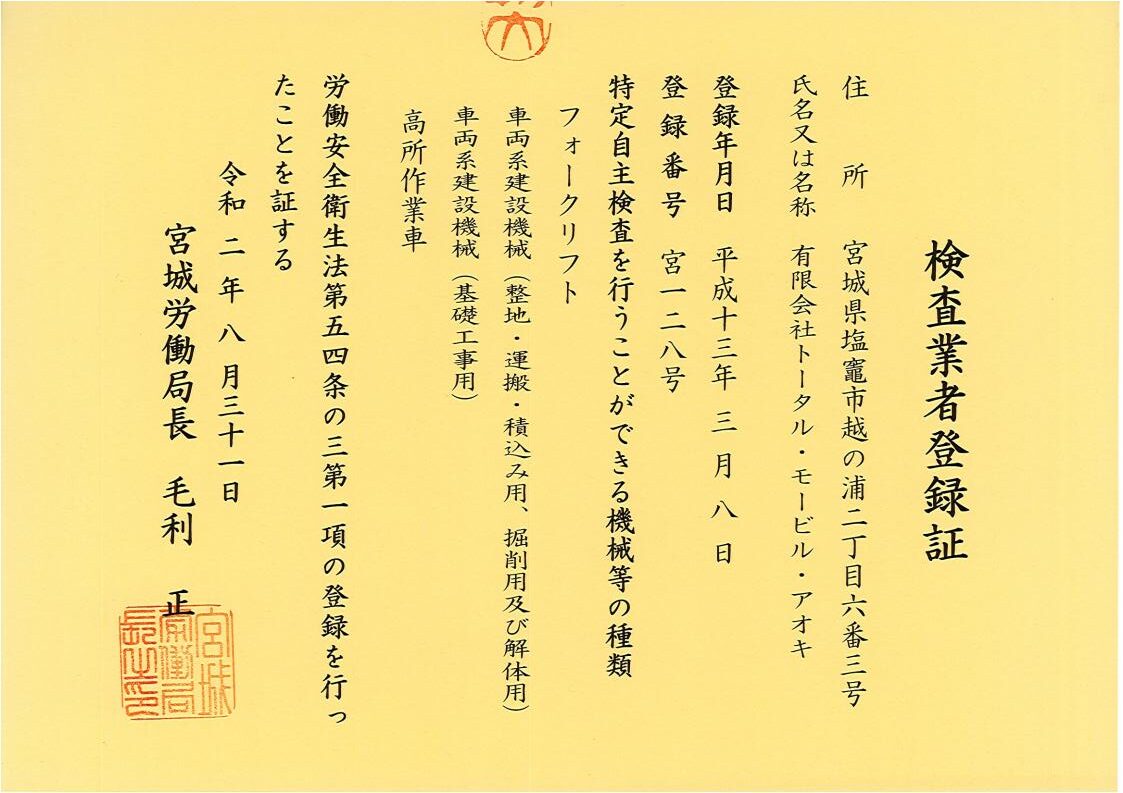 検査業者登録証
住　所　宮城県塩竈市越の浦二丁目六番三号
氏名又は名称　有限会社トータル・モービル・アオキ
登録年月日　平成十三年 三 月 八 日
登 録 番 号　宮一二八号
特定自主検査を行うことができる機械等の種類
フォークリフト
車両系建設機械（整地・運搬・積込み用、掘削用及び解体用）
車両系建設機械（基礎工事用）
高所作業車
労働安全衛生法第五四条の三第一項の登録を行っ
たことを証する
令和 二 年 八 月三十一日
宮城労働局長　毛利　正
宮城
労働局
長之印